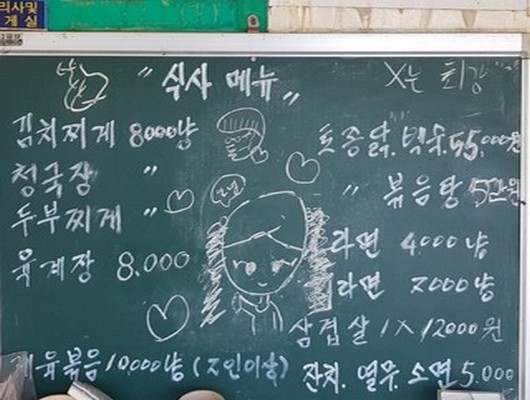 " 식사 메뉴 "
X는 최강
김치찌게 8000냥
청국장 "
두부찌게 "
육계장 8.000
제육볶음 10.000냥 (2인이상)
토종닭. 백숙 55.000원
" 볶음탕 5만원
라면 4.000냥
라면 7000냥
삼겹살 1人 12000원
잔치. 열무. 소면 5.000